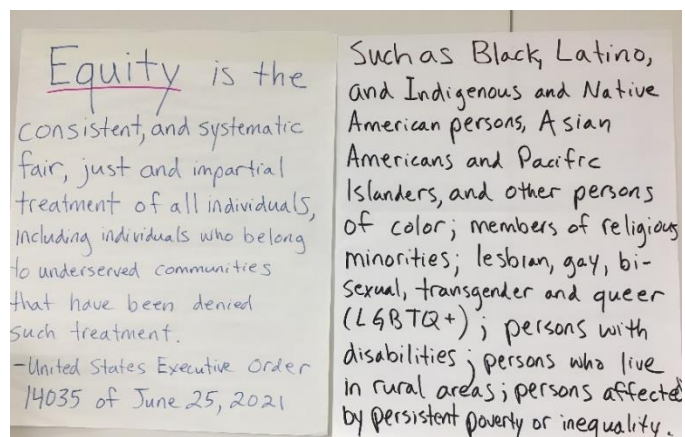 Equity is the
consistent, and systematic
fair, just and impartial
treatment of all individuals,
including individuals who belong
to underserved communities
that have been denied
such treatment.
-United States Executive Order
14035 of June 25, 2021
Such as Black, Latino,
and Indigenous and Native
American persons, Asian
Americans and Pacific
Islanders, and other persons
of color; members of religious
minorities; lesbian, gay, bi-
sexual, transgender and queer
(LGBTQ+); persons with
disabilities; persons who live
in rural areas; persons affected
by persistent poverty or inequality.